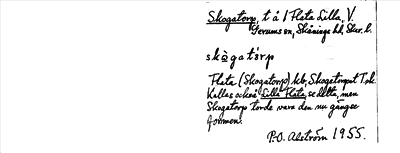 Skogatorp, t å 1 Flata Lilla, V.
Gerums sn, Skånings hd, Skar. l.
skògatòrp
Flata (Skogatorp) kb, Skogatorpet T.sk.
Kallas också Lilla Flata, se detta, men
Skogatorp torde vara den nu gängse
formen.
P.O. Alström 1955.